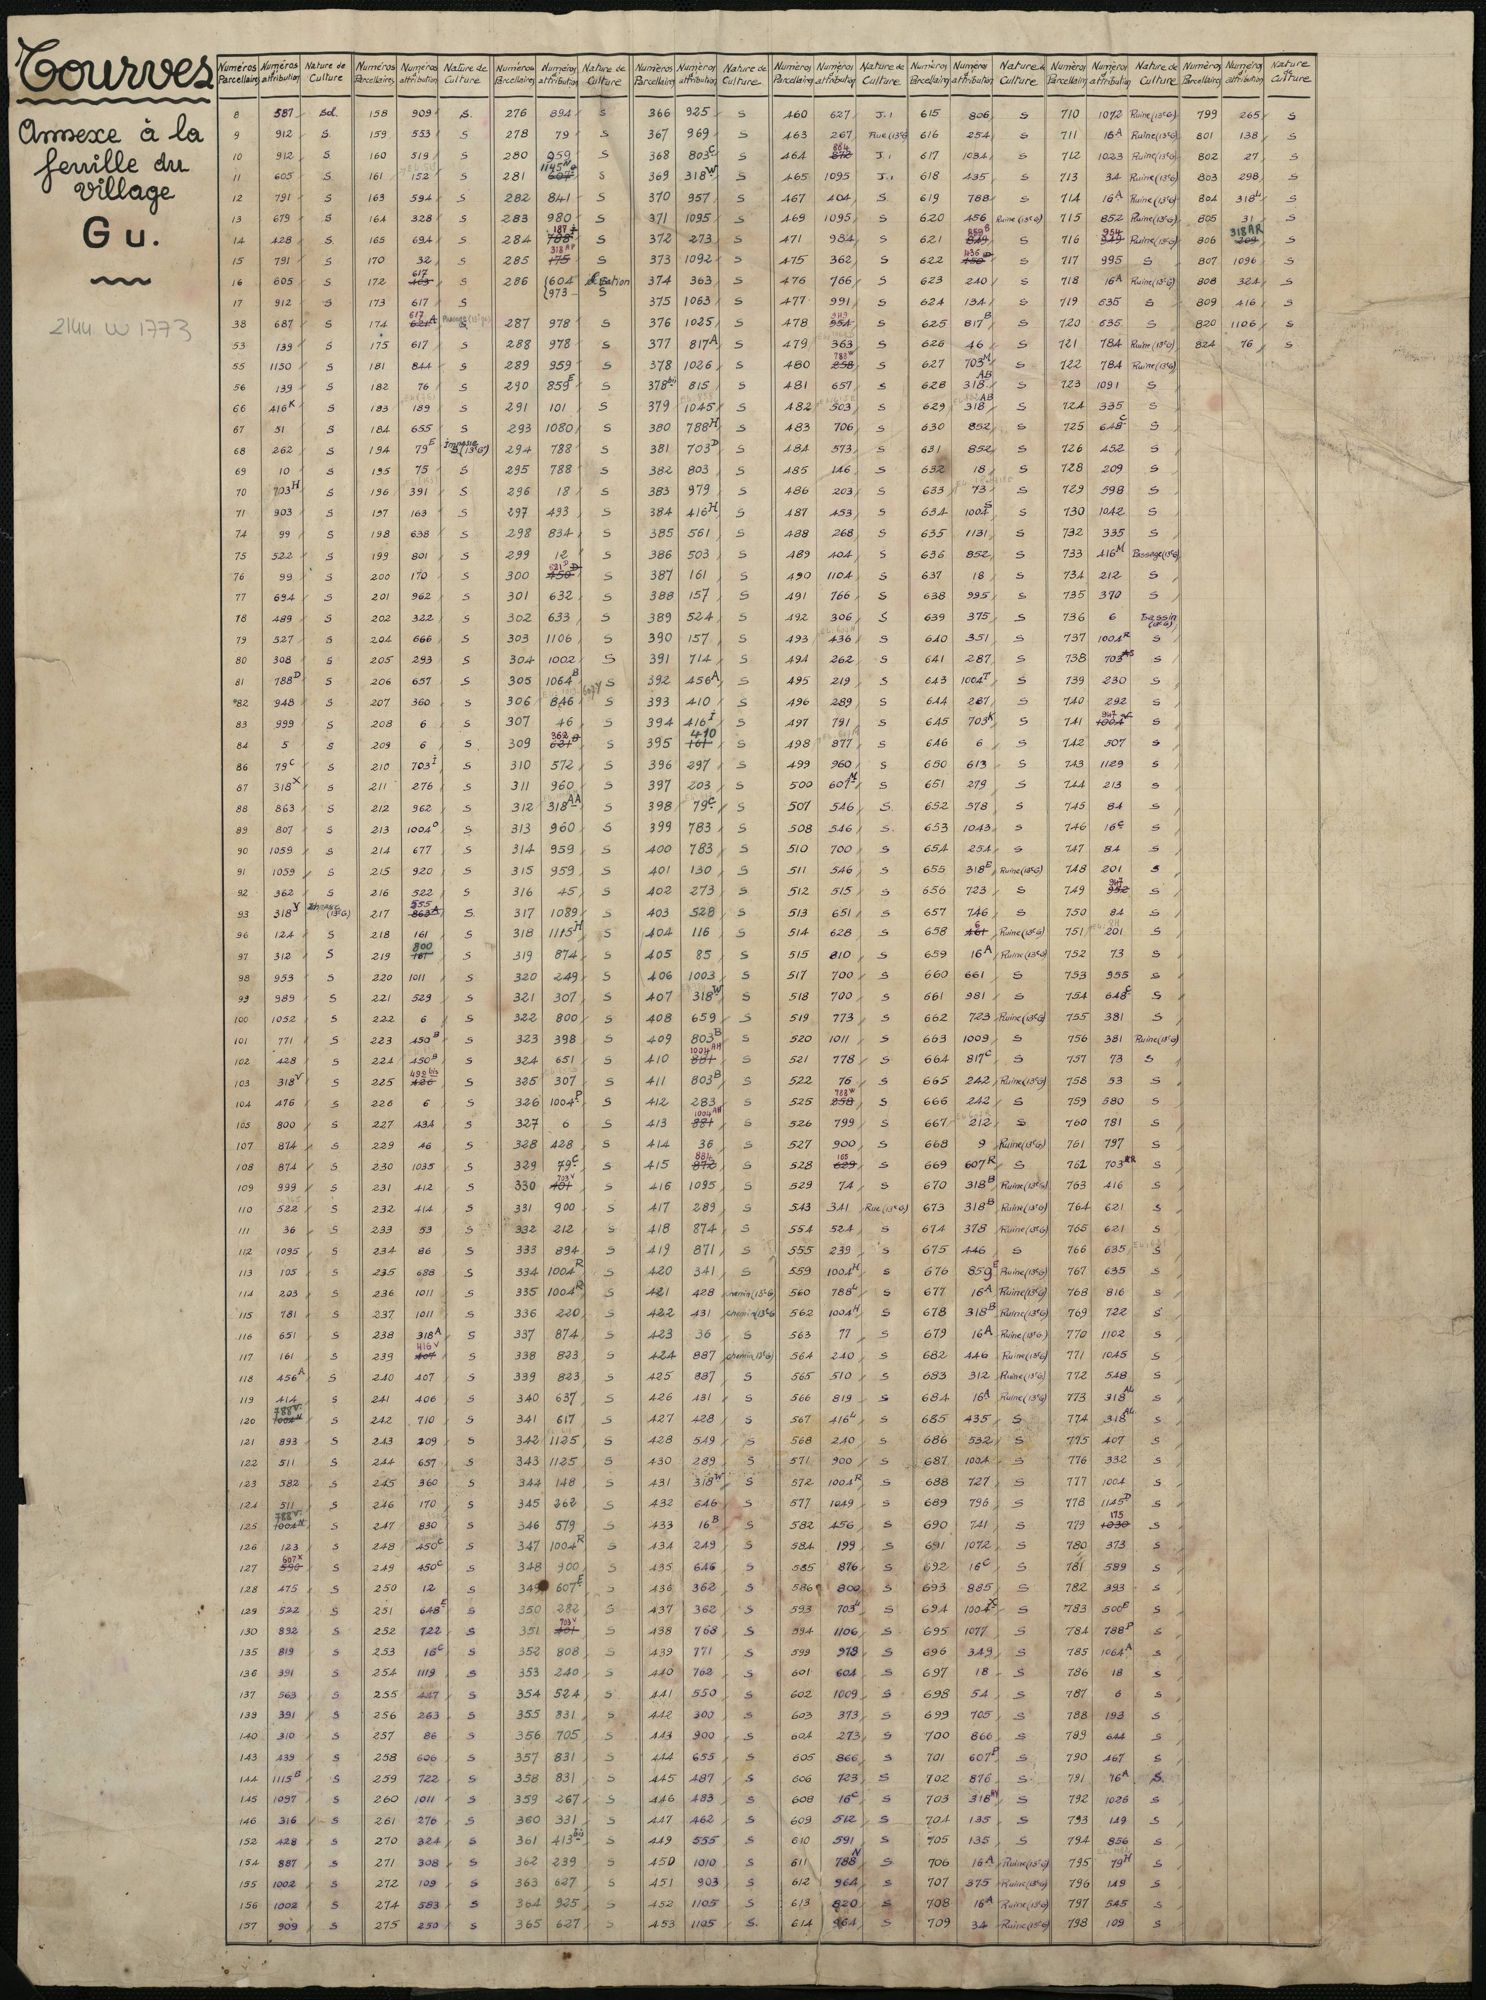 Tourves
Annexe à la
feuille du
village
Gu.
2144 W 1773
Numéros Parcellaires Numéros d'attribution Nature de Culture
8 587 Sol.
9 912 S
10 912 S
11 605 S
12 791 S
13 679 S
14 428 S
15 791 S
16 605 S
17 912 S
38 687 S
53 139 S
55 1150 S
56 139 S
66 416K S
67 51 S
68 262 S
69 10 S
70 703H S
71 903 S
74 99 S
75 522 S
76 99 S
77 694 S
78 489 S
79 527 S
80 308 S
81 788D S
82 948 S
83 999 S
84 5 S
86 79C S
87 318X S
88 863 S
89 807 S
90 1059 S
91 1059 S
92 362 S
93 318Y (13eG)
96 124 S
97 312 S
98 953 S
99 989 S
100 1052 S
101 771 S
102 428 S
103 318V S
104 476 S
105 800 S
107 874 S
108 874 S
109 999 S
110 522 S
111 36 S
112 1095 S
113 105 S
114 203 S
115 781 S
116 651 S
117 161 S
118 456A S
119 414 S
120 788V 1004N S
121 893 S
122 511 S
123 582 S
124 511 S
125 788V 1004N S
126 123 S
127 607X 590 S
128 475 S
129 522 S
130 892 S
135 819 S
136 391 S
137 563 S
139 391 S
140 310 S
143 439 S
144 1115B S
145 1097 S
146 316 S
152 428 S
154 887 S
155 1002 S
156 1002 S
157 909 S
Numéros Parcellaires Numéros d'attribution Nature de Culture
158 909 S.
159 553 S
160 519 S
161 152 S
163 594 S
164 328 S
165 694 S
170 32 S
172 617 463 S
173 617 S
174 617 621A S
175 617 S
181 844 S
182 76 S
183 189 S
184 655 S
194 79E Impasse S (13eG)
195 75 S
196 391 S
197 163 S
198 638 S
199 801 S
200 170 S
201 962 S
202 322 S
204 666 S
205 293 S
206 657 S
207 360 S
208 6 S
209 6 S
210 703I S
211 276 S
212 962 S
213 1004O S
214 677 S
215 920 S
216 522 S
217 555 863A S.
218 161 S
219 800 161 S
220 1011 S
221 529 S
222 6 S
223 450B S
224 450B S
225 492bis 426 S
226 6 S
227 434 S
229 46 S
230 1035 S
231 412 S
232 414 S
233 53 S
234 86 S
235 688 S
236 1011 S
237 1011 S
238 318A S
239 416V 407 S
240 407 S
241 406 S
242 710 S
243 209 S
244 657 S
245 360 S
246 170 S
247 830 S
248 450C S
249 450C S
250 12 S
251 648E S
252 722 S
253 16C S
254 1119 S
255 447 S
256 263 S
257 86 S
258 606 S
259 722 S
260 1011 S
261 276 S
270 324 S
271 308 S
272 109 S
274 583 S
275 250 S
Numéros Parcellaires Numéros d'attribution Nature de Culture
276 894 S
278 79 S
280 959 S
281 1145N 607 S
282 841 S
283 980 S
284 187 788 S
285 318AP 175 S
286 604 973 S
287 978 S
288 978 S
289 959 S
290 859E S
291 101 S
293 1080 S
294 788 S
295 788 S
296 18 S
297 493 S
298 834 S
299 12 S
300 621D 450 S
301 632 S
302 633 S
303 1106 S
304 1002 S
305 1064B S
306 846 S
307 46 S
309 362 621B S
310 572 S
311 960 S
312 318AA S
313 960 S
314 959 S
315 959 S
316 45 S
317 1089 S
318 1115H S
319 874 S
320 249 S
321 307 S
322 800 S
323 398 S
324 651 S
325 307 S
326 1004P S
327 6 S
328 428 S
329 79C S
330 703V 401 S
331 900 S
332 212 S
333 894 S
334 1004R S
335 1004R S
336 220 S
337 874 S
338 823 S
339 823 S
340 637 S
341 617 S
342 1125 S
343 1125 S
344 148 S
345 262 S
346 579 S
347 1004R S
348 900 S
349 607E S
350 282 S
351 703V 401 S
352 808 S
353 240 S
354 524 S
355 831 S
356 705 S
357 831 S
358 831 S
359 267 S
360 331 S
361 413bis S
362 239 S
363 627 S
364 925 S
365 627 S
Numéros Parcellaires Numéros d'attribution Nature de Culture
366 925 S
367 969 S
368 803C S
369 318W S
370 957 S
371 1095 S
372 273 S
373 1092 S
374 363 S
375 1063 S
376 1025 S
377 817A S
378 1026 S
378bis 815 S
379 1045 S
380 788H S
381 703D S
382 803 S
383 979 S
384 416H S
385 561 S
386 503 S
387 161 S
388 157 S
389 524 S
390 157 S
391 714 S
392 456A S
393 410 S
394 416I S
395 410 161 S
396 297 S
397 203 S
398 79C S
399 783 S
400 783 S
401 130 S
402 273 S
403 528 S
404 116 S
405 85 S
406 1003 S
407 318W S
408 659 S
409 803B S
410 1004AH 881 S
411 803B S
412 283 S
413 1004AH 881 S
414 36 S
415 884 872 S
416 1095 S
417 289 S
418 874 S
419 871 S
420 341 S
421 428 chemin (13eG)
422 431 chemin (13eG)
423 36 S
424 887 chemin (13eG)
425 887 S
426 431 S
427 428 S
428 549 S
430 289 S
431 318W S
432 646 S
433 16B S
434 249 S
435 646 S
436 362 S
437 362 S
438 768 S
439 771 S
440 762 S
441 550 S
442 300 S
443 900 S
444 655 S
445 487 S
446 483 S
447 462 S
449 555 S
450 1010 S
451 903 S
452 1105 S
453 1105 S.
Numéros Parcellaires Numéros d'attribution Nature de Culture
460 627 J.
463 267 Rue (13eG)
464 884 872 J.
465 1095 J.
467 404 S
469 1095 S
471 984 S
475 362 S
476 766 S
477 991 S
478 949 954 S
479 363 S
480 788W 258 S
481 657 S
482 503 S
483 706 S
484 573 S
485 146 S
486 203 S
487 453 S
488 268 S
489 404 S
490 1104 S
491 766 S
492 306 S
493 436 S
494 262 S
495 219 S
496 289 S
497 791 S
498 877 S
499 960 S
500 607M S
507 546 S.
508 546 S.
510 700 S
511 546 S
512 515 S
513 651 S
514 628 S
515 810 S
517 700 S
518 700 S
519 773 S
520 1011 S
521 778 S
522 76 S
525 788W 258 S
526 799 S
527 900 S
528 165 629 S
529 74 S
543 341 Rue (13eG)
554 524 S
555 239 S
559 1004H S
560 788L S
562 1004H S
563 77 S
564 240 S
565 510 S
566 819 S
567 416L S
568 240 S
571 900 S
572 1004R S
577 1049 S
582 456 S
584 199 S
585 876 S
586 800 S
593 703L S
594 1106 S
599 978 S
601 604 S
602 1009 S
603 373 S
604 273 S
605 866 S
606 723 S
608 16C S
609 512 S
610 591 S
611 788N S
612 964 S
613 820 S
614 964 S
Numéros Parcellaires Numéros d'attribution Nature de Culture
615 806 S
616 254 S
617 1034 S
618 435 S
619 788 S
620 456 Ruine (13eG)
621 859B 849 S
622 1136 450 S
623 240 S
624 134 S
625 817B S
626 46 S
627 703M S
628 318AB S
629 318AB S
630 852 S
631 852 S
632 18 S
633 73 S
634 1004S S
635 1131 S
636 852 S
637 18 S
638 995 S
639 375 S
640 351 S
641 287 S
643 1004T S
644 287 S
645 703K S
646 6 S
650 613 S
651 279 S
652 578 S
653 1043 S
654 254 S
655 318E Ruine (13eG)
656 723 S
657 746 S
658 6 461 Ruine (13eG)
659 16A Ruine (13eG)
660 661 S
661 981 S
662 723 Ruine (13eG)
663 1009 S
664 817C S
665 242 Ruine (13eG)
666 242 S
667 212 S
668 9 Ruine (13eG)
669 607R S
670 318B Ruine (13eG)
673 318B Ruine (13eG)
674 378 Ruine (13eG)
675 446 S
676 859E Ruine (13eG)
677 16A Ruine (13eG)
678 318B Ruine (13eG)
679 16A Ruine (13eG)
682 446 Ruine (13eG)
683 312 Ruine (13eG)
684 16A Ruine (13eG)
685 435 S
686 532 S
687 1004 S
688 727 S
689 796 S
690 741 S
691 1072 S
692 16C S
693 885 S
694 1004X S
695 1077 S
696 349 S
697 18 S
698 54 S
699 705 S
700 866 S
701 607P S
702 876 S
703 318 S
704 135 S
705 135 S
706 16A Ruine (13eG)
707 375 Ruine (13eG)
708 16A Ruine (13eG)
709 34 Ruine (13eG)
Numéros Parcellaires Numéros d'attribution Nature de Culture
710 1072 Ruine (13eG)
711 16A Ruine (13eG)
712 1023 Ruine (13eG)
713 34 Ruine (13eG)
714 16A Ruine (13eG)
715 852 Ruine (13eG)
716 954 949 Ruine (13eG)
717 995 S
718 16A Ruine (13eG)
719 635 S
720 635 S
721 784 Ruine (13eG)
722 784 Ruine (13eG)
723 1091 S
724 335 S
725 648C S
726 452 S
728 209 S
729 598 S
730 1042 S
732 335 S
733 416M Passage (13eG)
734 212 S
735 370 S
736 6 Bassin (13eG)
737 1004R S
738 703AS S
739 230 S
740 292 S
741 947 1004V S
742 507 S
743 1129 S
744 213 S
745 84 S
746 16C S
747 84 S
748 201 S
749 947 952 S
750 84 S
751 201 S
752 73 S
753 955 S
754 648C S
755 381 S
756 381 Ruine (13eG)
757 73 S
758 53 S
759 580 S
760 781 S
761 797 S
762 703RR S
763 416 S
764 621 S
765 621 S
766 635 S
767 635 S
768 816 S
769 722 S
770 1102 S
771 1045 S
772 548 S
773 318AL S
774 318AL S
775 407 S
776 332 S
777 1004 S
778 1145D S
779 175 1030 S
780 373 S
781 589 S
782 393 S
783 500E S
784 788P S
785 1064A S
786 18 S
787 6 S
788 193 S
789 644 S
790 467 S
791 76A S.
792 1026 S
793 149 S
794 856 S
795 79H S
796 149 S
797 545 S
798 109 S
Numéros Parcellaires Numéros d'attribution Nature de Culture
799 265 S
801 138 S
802 27 S
803 298 S
804 318L S
805 31 S
806 318AR 209 S
807 1096 S
808 324 S
809 416 S
820 1106 S
824 76 S